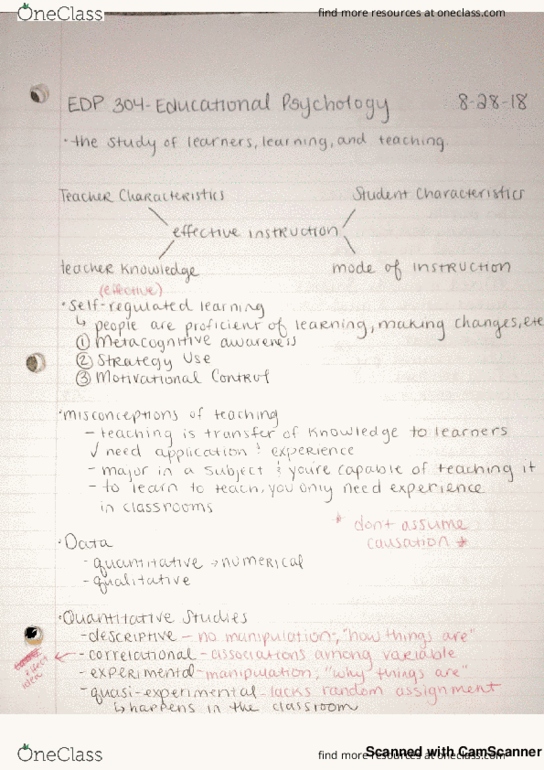 OneClass
find more resources at oneclass.com
EDP 304-Educational Psychology 8-28-18
· the study of learners, learning, and teaching.
Teacher Characteristics Student Characteristics
effective instruction
teacher knowledge mode of instruction
(effective)
· Self-regulated learning
↳ people are proficient of learning, making changes, etc
① Metacognitive awareness
② Strategy Use
③ Motivational Control
· misconceptions of teaching
- teaching is transfer of knowledge to learners
√ need application & experience
- major in a subject & you're capable of teaching it
- to learn to teach, you only need experience
in classrooms
* dont assume
causation *
· Data
- quantitative → numerical
- qualitative
· Quantitative Studies
- descriptive - no manipulation; "how things are"
- correlational - associations among variable
- experimental - manipulation; "why things are"
- quasi-experimental - lacks random assignment
↳ happens in the classroom
effect
OneClass
find more resources at oneclass.com
Scanned with CamScanner